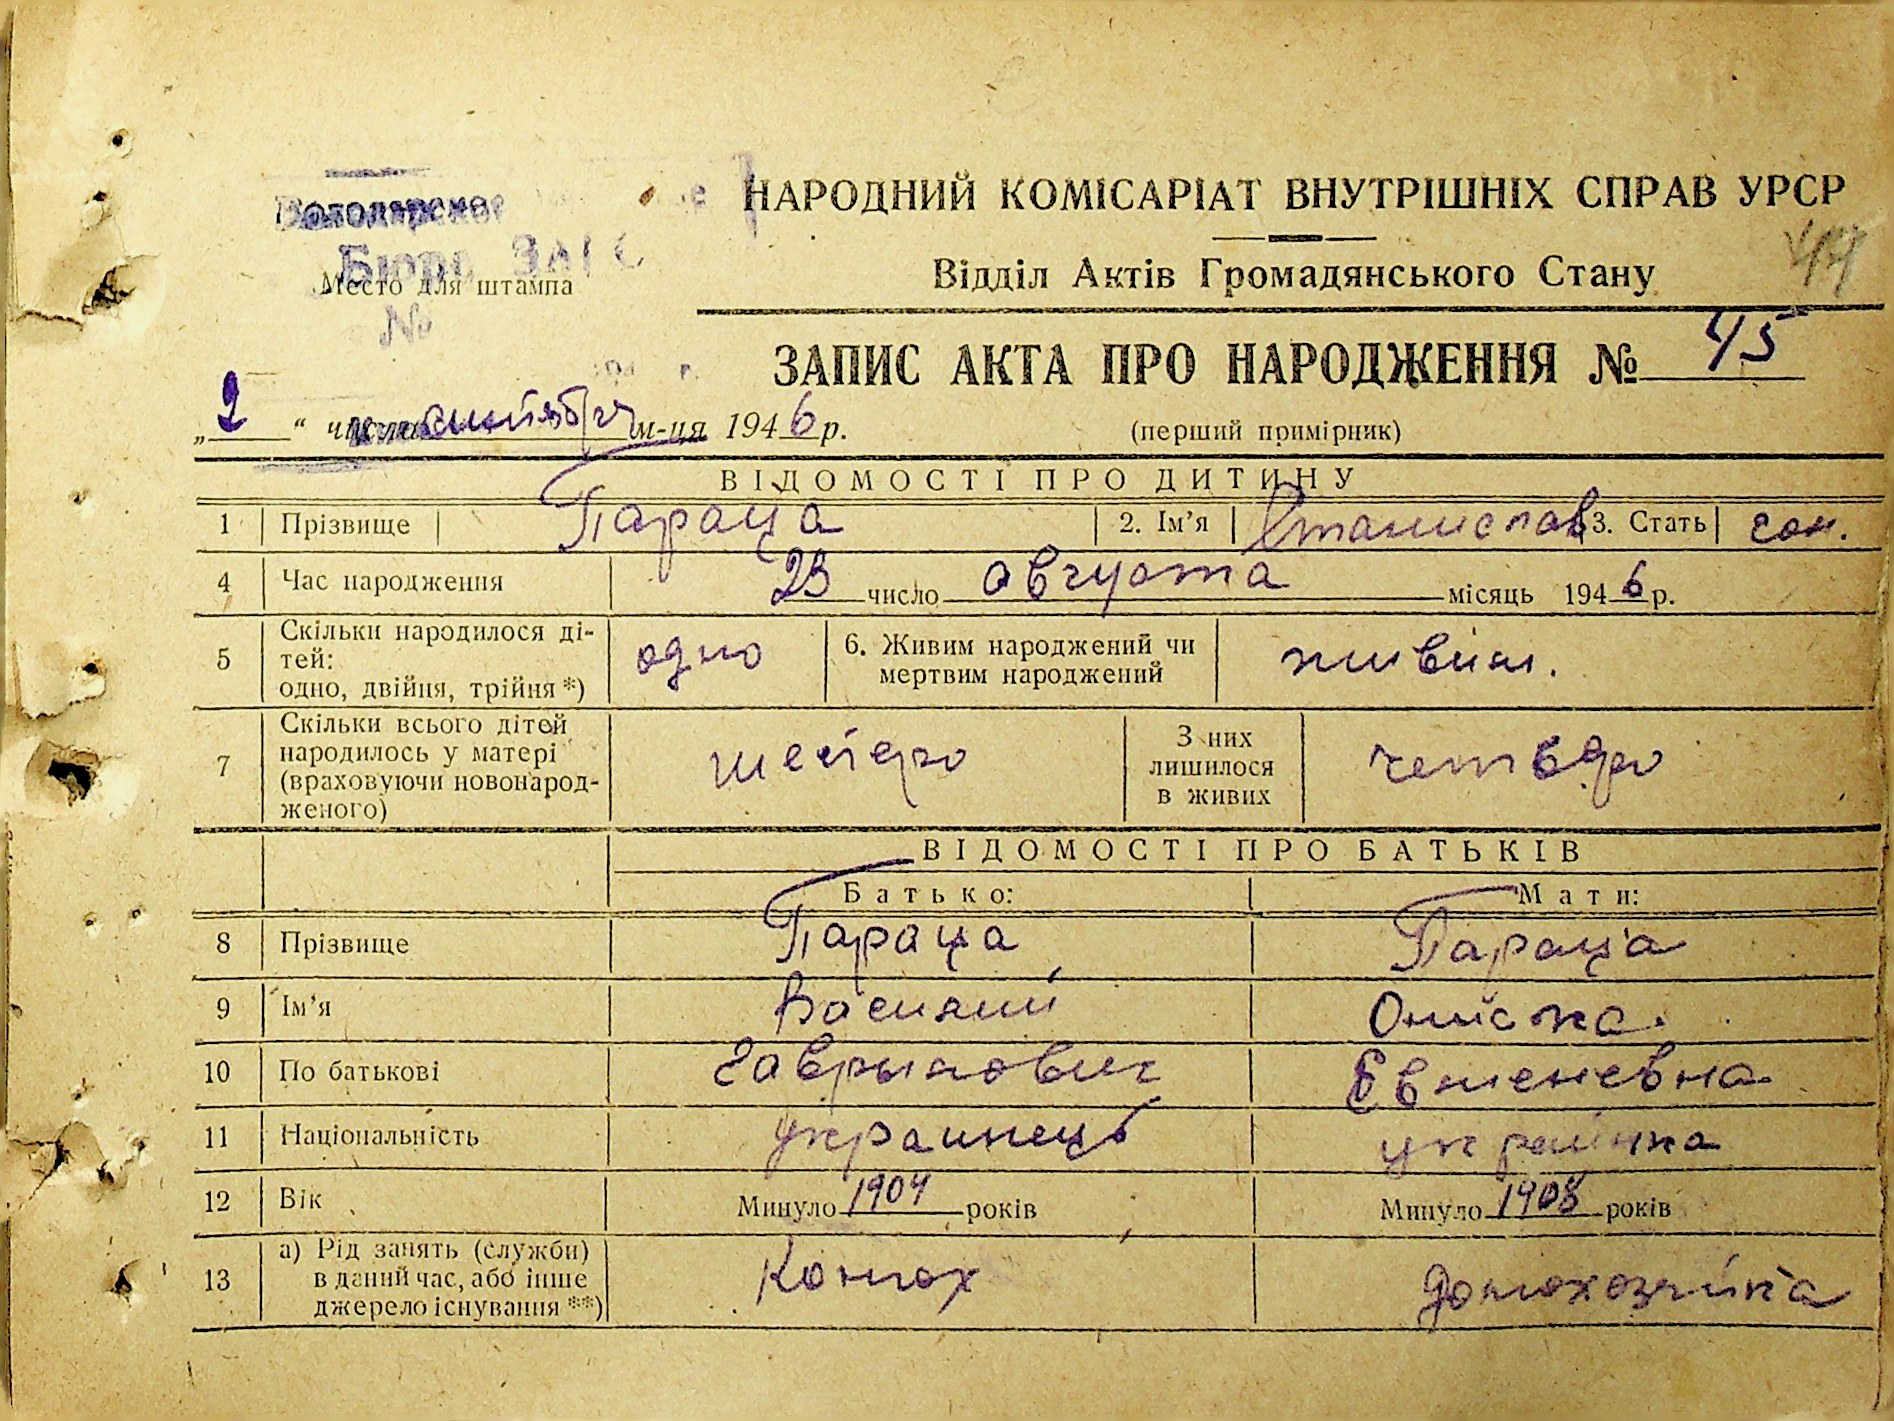 Володарское
Бюро ЗАГС
Место для штампа
№
НАРОДНИЙ КОМІСАРІАТ ВНУТРІШНІХ СПРАВ УРСР
Відділ Актів Громадянського Стану
ЗАПИС АКТА ПРО НАРОДЖЕННЯ № 45
„2“ числа сентября м-ця 1946 р.
(перший примірник)
ВІДОМОСТІ ПРО ДИТИНУ
1 Прізвище Параца 2. Ім’я Станислав 3. Стать
4 Час народження 23 число августа місяць 1946 р.
5 Скільки народилося ді-
тей:
одно, двійня, трійня *) одно 6. Живим народжений чи
мертвим народжений живим.
7 Скільки всього дітей
народилось у матері
(враховуючи новонарод-
женого) шестеро З них
лишилося
в живих четверо
ВІДОМОСТІ ПРО БАТЬКІВ
Батько: Мати:
8 Прізвище Параца Параца
9 Ім’я Василий
10 По батькові Гаврылович
11 Національність украинець українка
12 Вік Минуло 1904 років Минуло 1908 років
13 а) Рід занять (служби)
в даний час, або інше
джерело існування **) домохозяйка